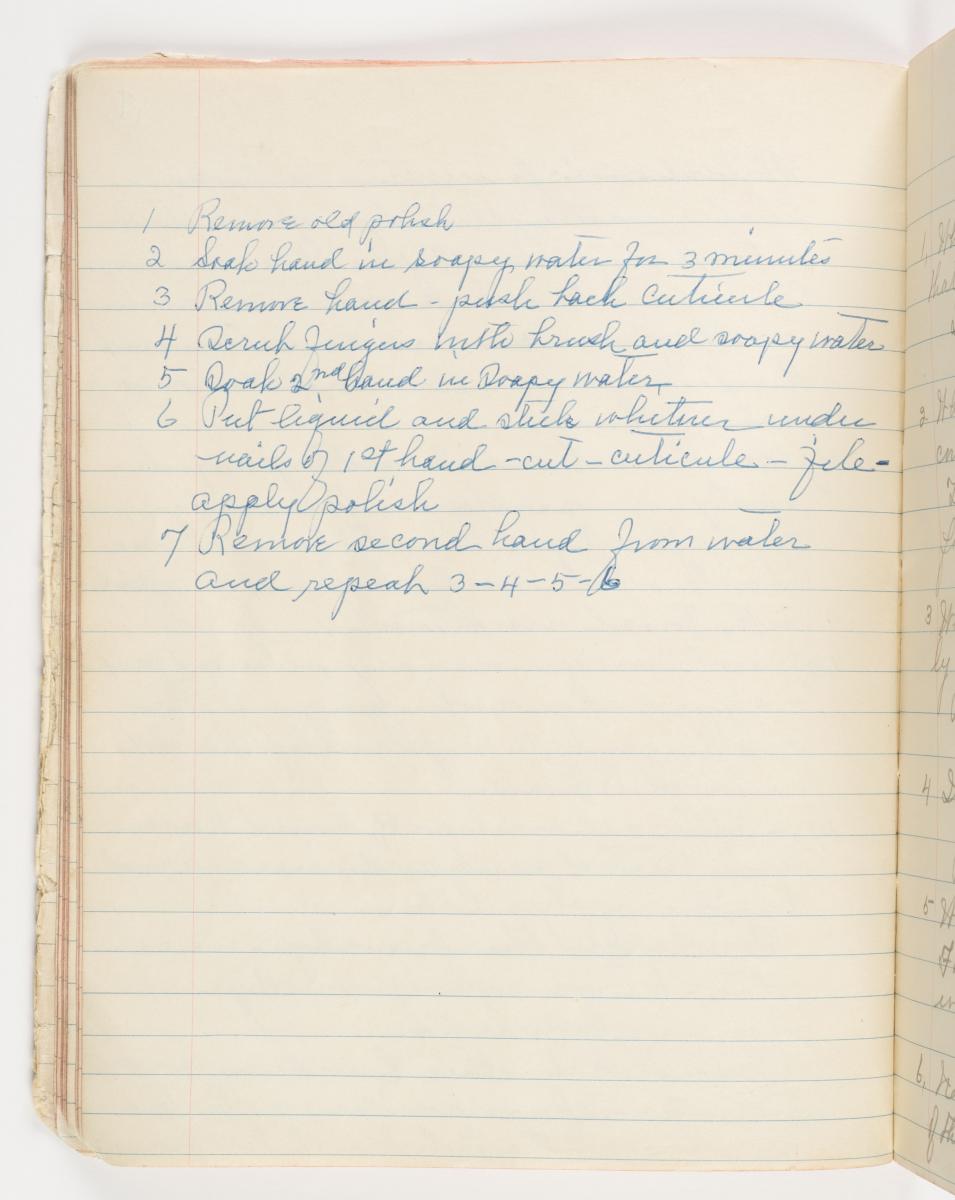 1 Remove old polish
2 Soak hand in soapy water for 3 minutes
3 Remove hand - push back cuticule
4 Scrub fingers with brush and soapy water
5 Soak 2nd hand in soapy water
6 Put liquid and stick whitner under
nails of 1st hand - cut - cuticule - file -
apply polish
7 Remove second hand from water
and repeat 3-4-5-6
1,
2
3
4
5
6.